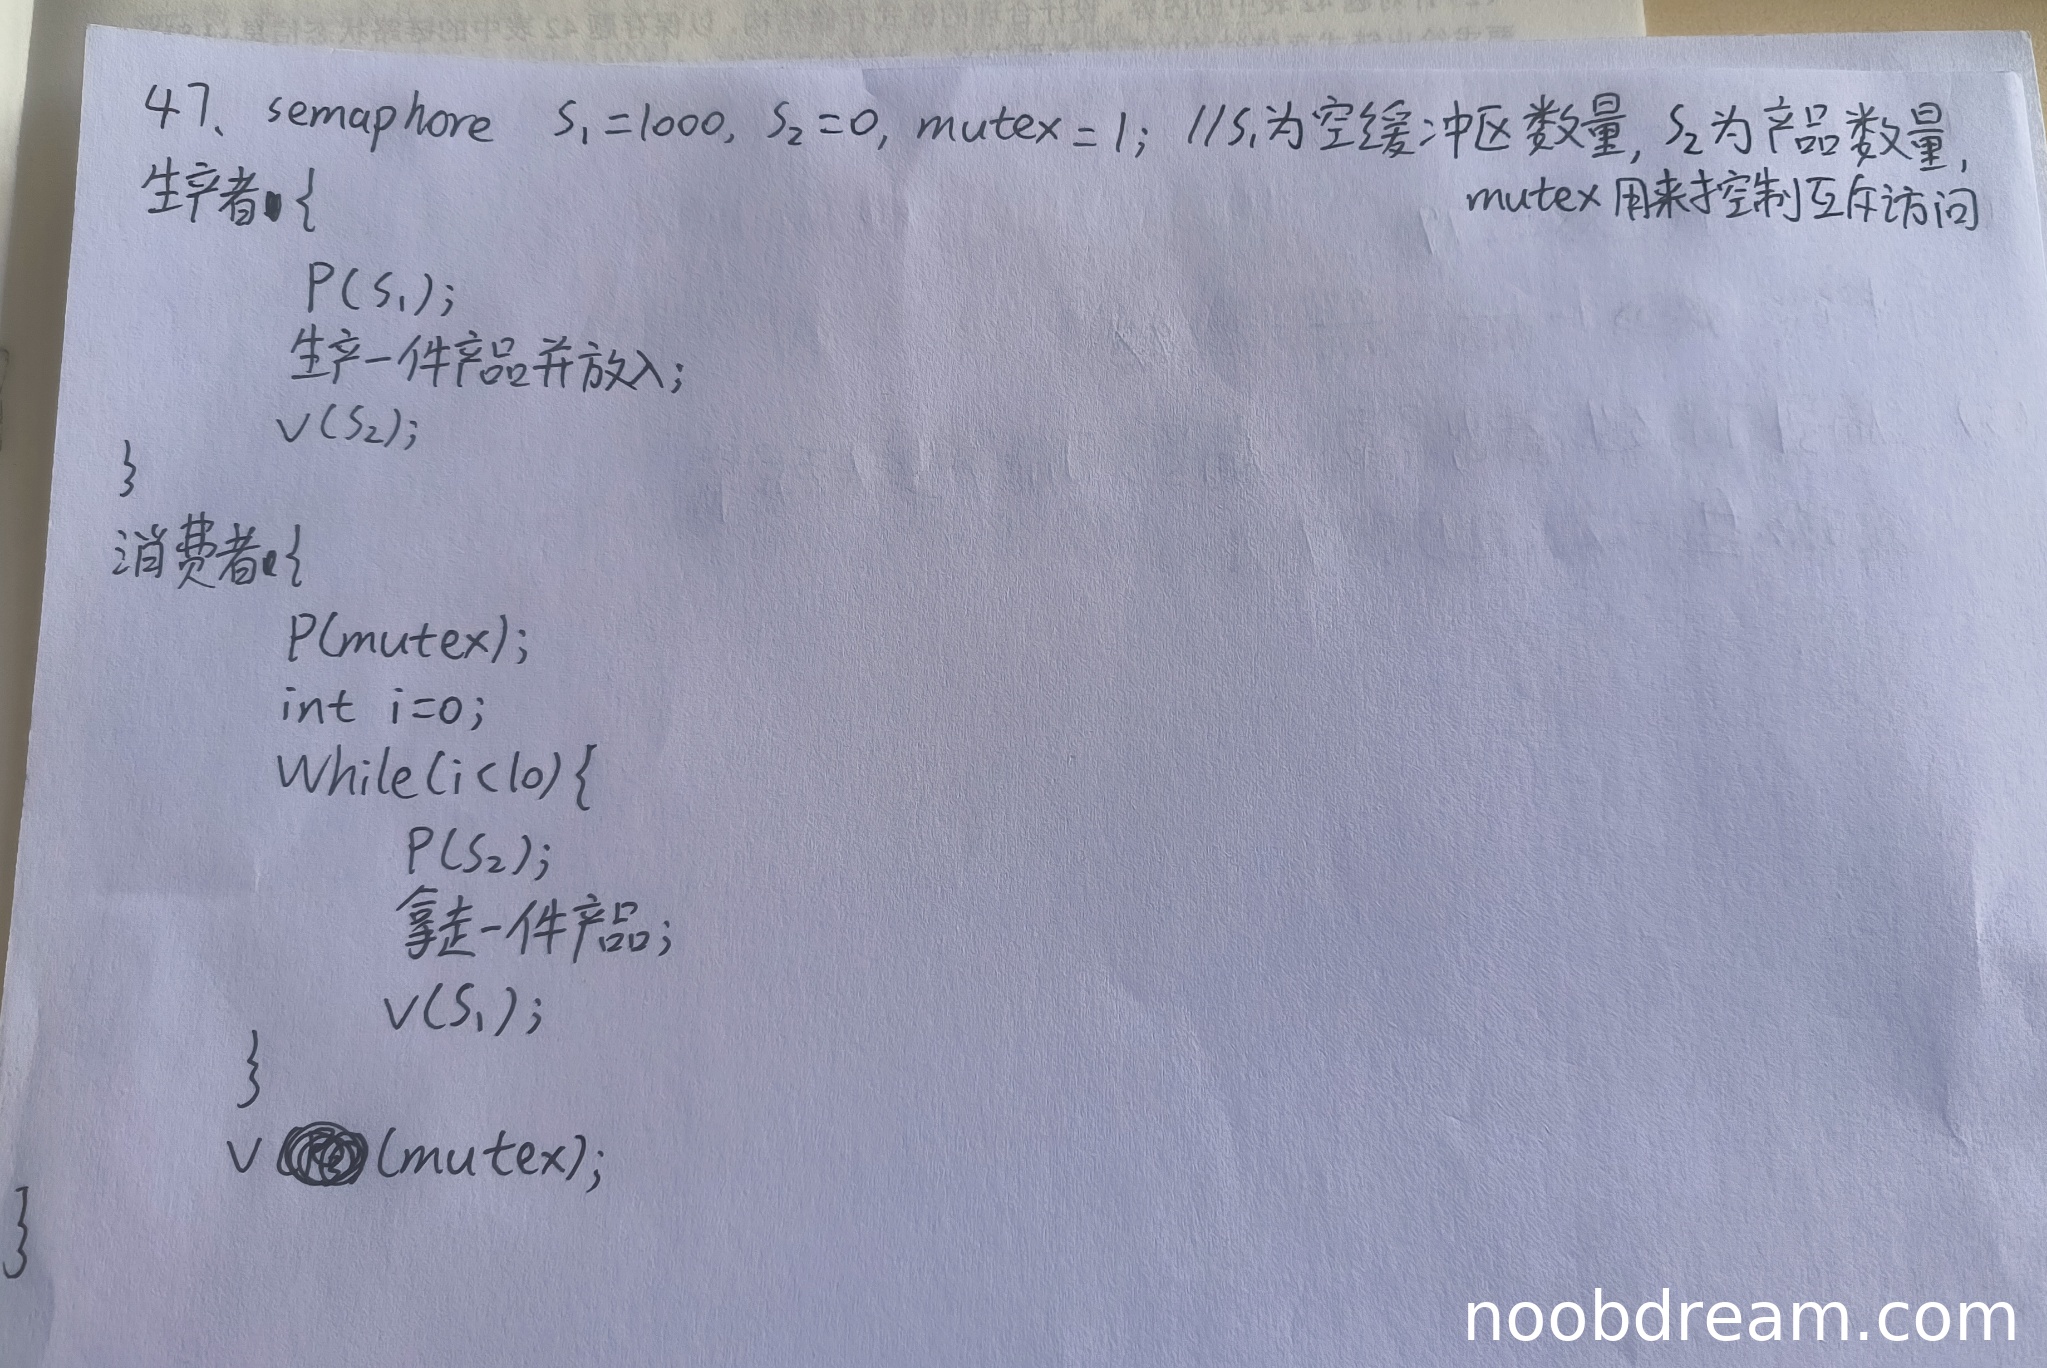 47、semaphore S₁=1000, S₂=0, mutex=1; //S₁为空缓冲区数量, S₂为产品数量,
mutex用来控制互斥访问
生产者{
P(S₁);
生产一件产品并放入;
V(S₂);
}
消费者{
P(mutex);
int i=0;
While(i<10){
P(S₂);
拿走一件产品;
V(S₁);
}
V(mutex);
}
noobdream.com